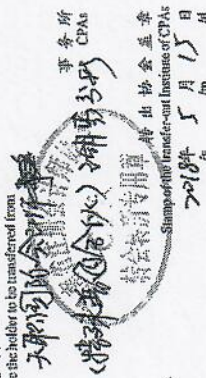 the holder to be transferred from
天职国际会计师
(特殊普通合伙)湖南分所
事务所
CPAs
转出协会盖章
Stamp of the transfer-out Institute of CPAs
2018年 5月 15日